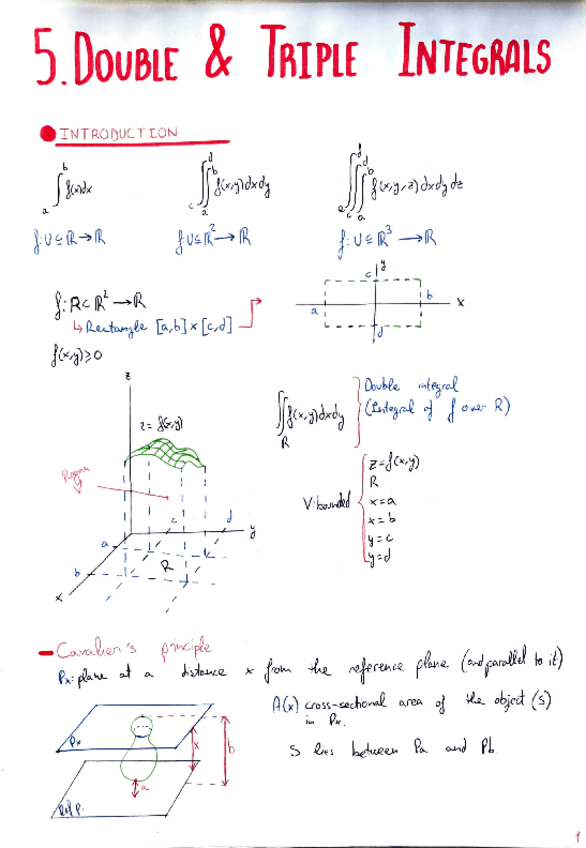 5. DOUBLE & TRIPLE INTEGRALS
INTRODUCTION
∫ₐᵇ f(x)dx ∫_c^d ∫_a^b f(x,y)dxdy ∫_e^f ∫_c^d ∫_a^b f(x,y,z)dxdydz
f: U⊆ℝ→ℝ f: U⊆ℝ²→ℝ f: U⊆ℝ³→ℝ
f: R⊂ℝ²→ℝ
↳ Rectangle [a,b]×[c,d]
f(x,y)≥0
y
c
a b x
d
z
z = f(x,y)
c d y
a
b R
x
∬_R f(x,y)dxdy } Double integral
(Integral of f over R)
V: bounded { z=f(x,y)
R
x=a
x=b
y=c
y=d
Cavalieri's principle
Px: plane at a distance x from the reference plane (and parallel to it)
A(x) cross-sectional area of the object (S)
in Px.
S lies between Pa and Pb.
Px
x
b
a
Ref P.
1